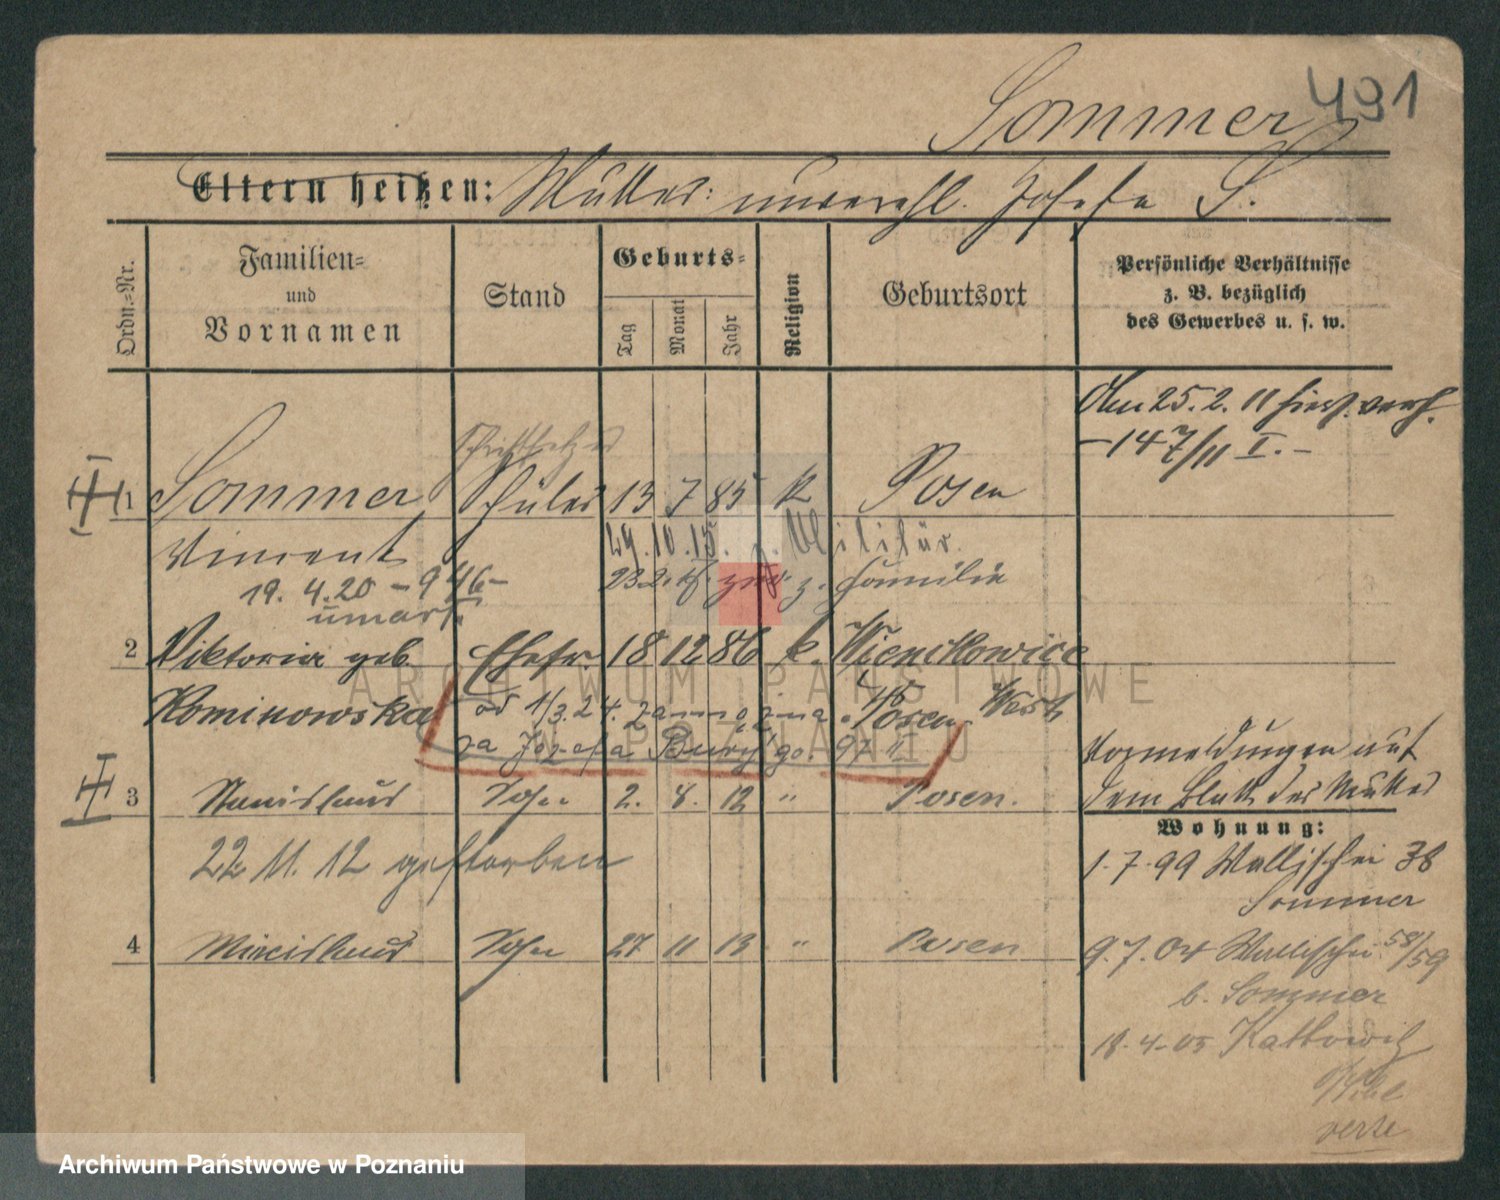 491
Sommer
Eltern heißen: Mutter: unverehl. Josefa S.
Ordn.=Nr.
Familien= und Vornamen
Stand
Geburts=
Tag
Monat
Jahr
Religion
Geburtsort
Persönliche Verhältnisse
z. B. bezüglich
des Gewerbes u. s. w.
Am 25.2.11 hier verh.
-147/11 I.-
Schriftsetzer
1 Sommer Schüler 13 7 85 k Posen
Vincent
29.10.15. z. Militär
23.2. zur. z. Familie
19. 4.20 - 9 46-
umarł.
2 Viktoria geb. Ehefr. 18 12 86 k. Wienckowice
Kominowska
Kr. Posen West
od 1/3.24. zamężna
za Józefa
Vormeldungen auf
dem Blatt der Mutter
3 Stanislaus Sohn 2. 8. 12 " Posen.
22 11. 12 gestorben
Wohnung:
1.7.99 Wallischei 38
Sommer
4 Miecislaus Sohn 27 11 13 " Posen
9.7.04 Wallischei 58/59
b. Sommer
18.4.05 Kattowitz
verte
ARCHIWUM PAŃSTWOWE
W POZNANIU
Archiwum Państwowe w Poznaniu